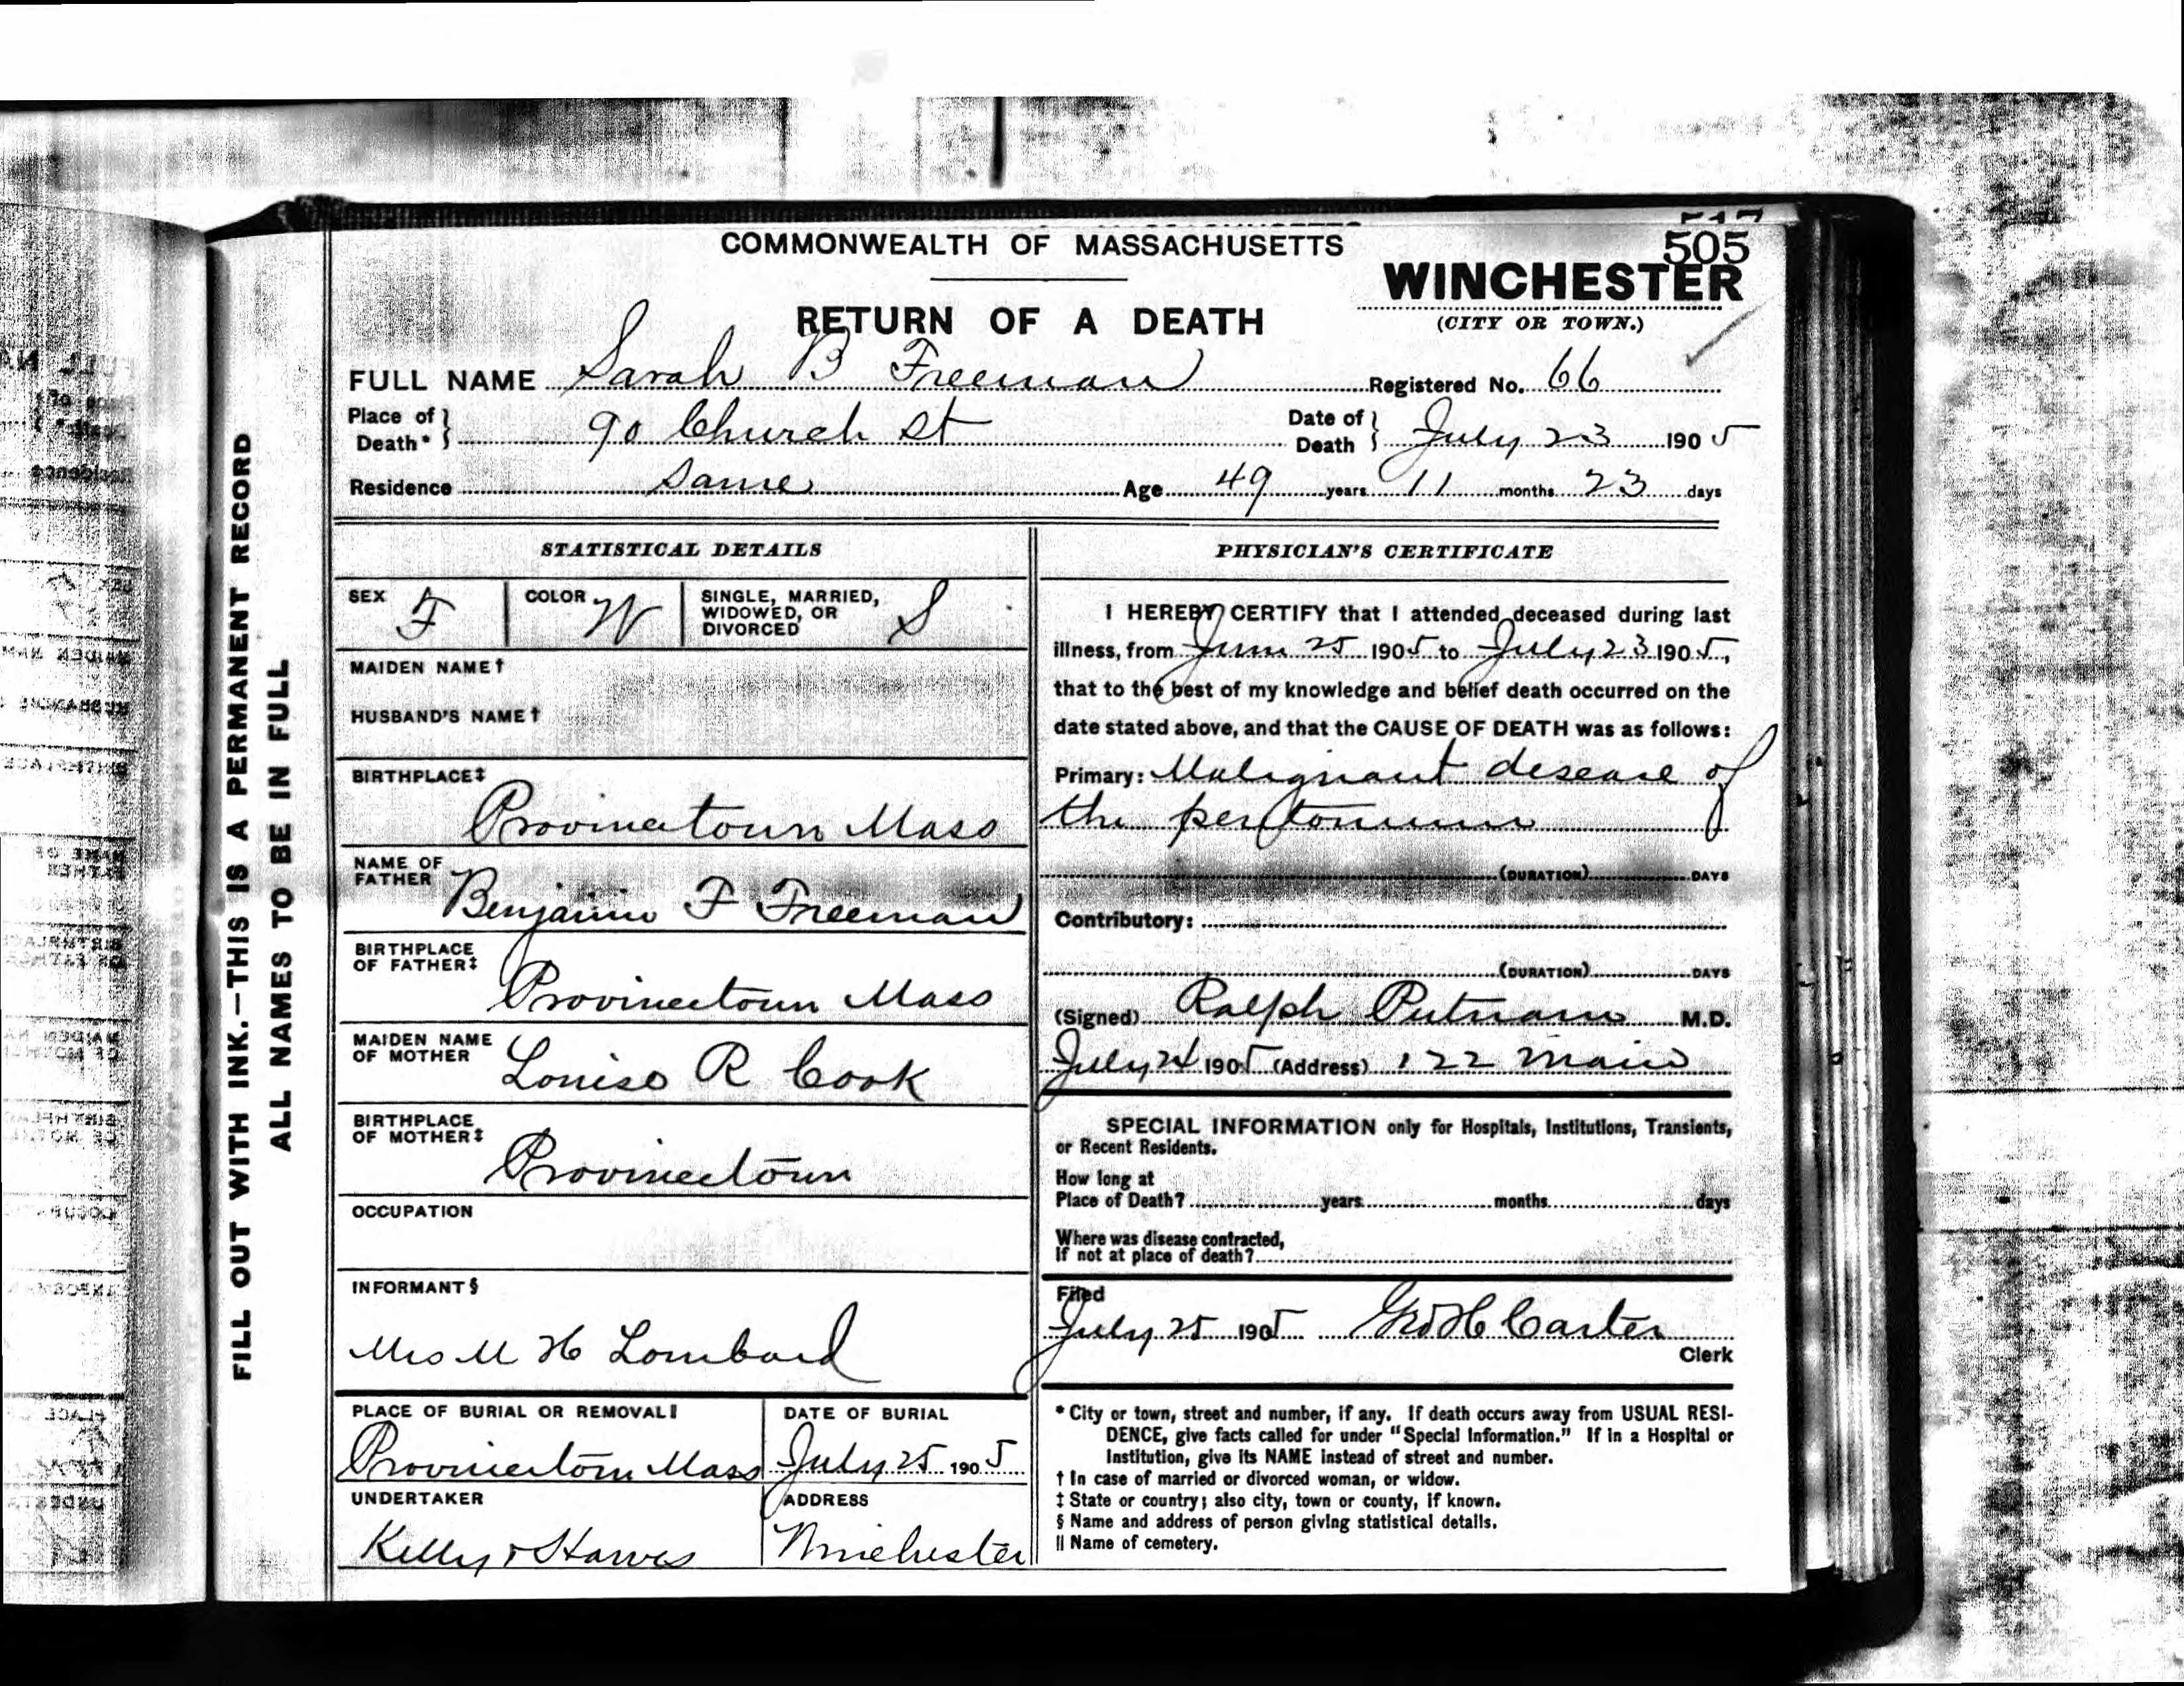 COMMONWEALTH OF MASSACHUSETTS
505
WINCHESTER
(CITY OR TOWN.)
RETURN OF A DEATH
FULL NAME Sarah B Freeman Registered No. 66
Place of Death* } 90 Church St Date of Death } July 23 1905
Residence Same Age 49 years 11 months 23 days
FILL OUT WITH INK.—THIS IS A PERMANENT RECORD
ALL NAMES TO BE IN FULL
STATISTICAL DETAILS
SEX F COLOR W SINGLE, MARRIED, WIDOWED, OR DIVORCED S
MAIDEN NAME†
HUSBAND'S NAME†
BIRTHPLACE‡
Provincetown Mass
NAME OF FATHER
Benjamin F Freeman
BIRTHPLACE OF FATHER‡
Provincetown Mass
MAIDEN NAME OF MOTHER
Louise R Cook
BIRTHPLACE OF MOTHER‡
Provincetown
OCCUPATION
INFORMANT§
Mrs M H Lombard
PLACE OF BURIAL OR REMOVAL‖ DATE OF BURIAL
Provincetown Mass July 25 1905
UNDERTAKER ADDRESS
Kelly & Hawes Winchester
PHYSICIAN'S CERTIFICATE
I HEREBY CERTIFY that I attended deceased during last
illness, from June 25 1905 to July 23 1905,
that to the best of my knowledge and belief death occurred on the
date stated above, and that the CAUSE OF DEATH was as follows:
Primary: Malignant disease of
the peritoneum
(DURATION) DAYS
Contributory:
(DURATION) DAYS
(Signed) Ralph Putnam M.D.
July 24 1905 (Address) 122 Main
SPECIAL INFORMATION only for Hospitals, Institutions, Transients,
or Recent Residents.
How long at
Place of Death? years months days
Where was disease contracted,
If not at place of death?
Filed
July 25 1905 Geo H Carter
Clerk
* City or town, street and number, if any. If death occurs away from USUAL RESI-
DENCE, give facts called for under "Special Information." If in a Hospital or
Institution, give its NAME instead of street and number.
† In case of married or divorced woman, or widow.
‡ State or country; also city, town or county, if known.
§ Name and address of person giving statistical details.
‖ Name of cemetery.